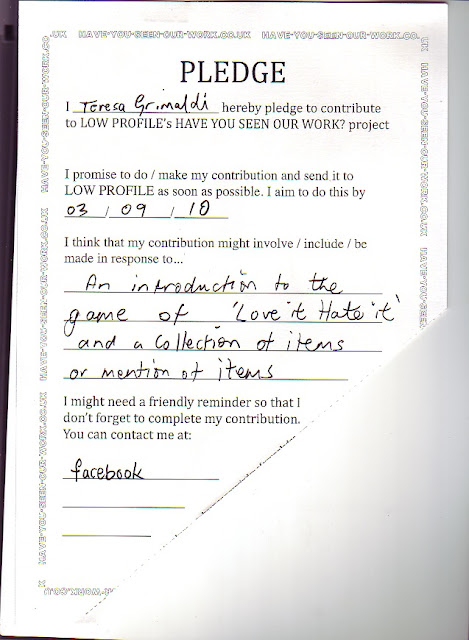 .UK HAVE-YOU-SEEN-OUR-WORK.CO.UK HAVE-YOU-SEEN-OUR-WORK.CO.
UK HAVE-YOU-SEEN-OUR-WORK.CO.UK
HAVE-YOU-SEEN-OUR-WORK.CO.UK
PLEDGE
I Teresa Grimaldi hereby pledge to contribute
to LOW PROFILE's HAVE YOU SEEN OUR WORK? project
I promise to do / make my contribution and send it to
LOW PROFILE as soon as possible. I aim to do this by
03 / 09 / 10
I think that my contribution might involve / include / be
made in response to...
An introduction to the
game of 'Love it Hate it'
and a collection of items
or mention of items
I might need a friendly reminder so that I
don't forget to complete my contribution.
You can contact me at:
facebook